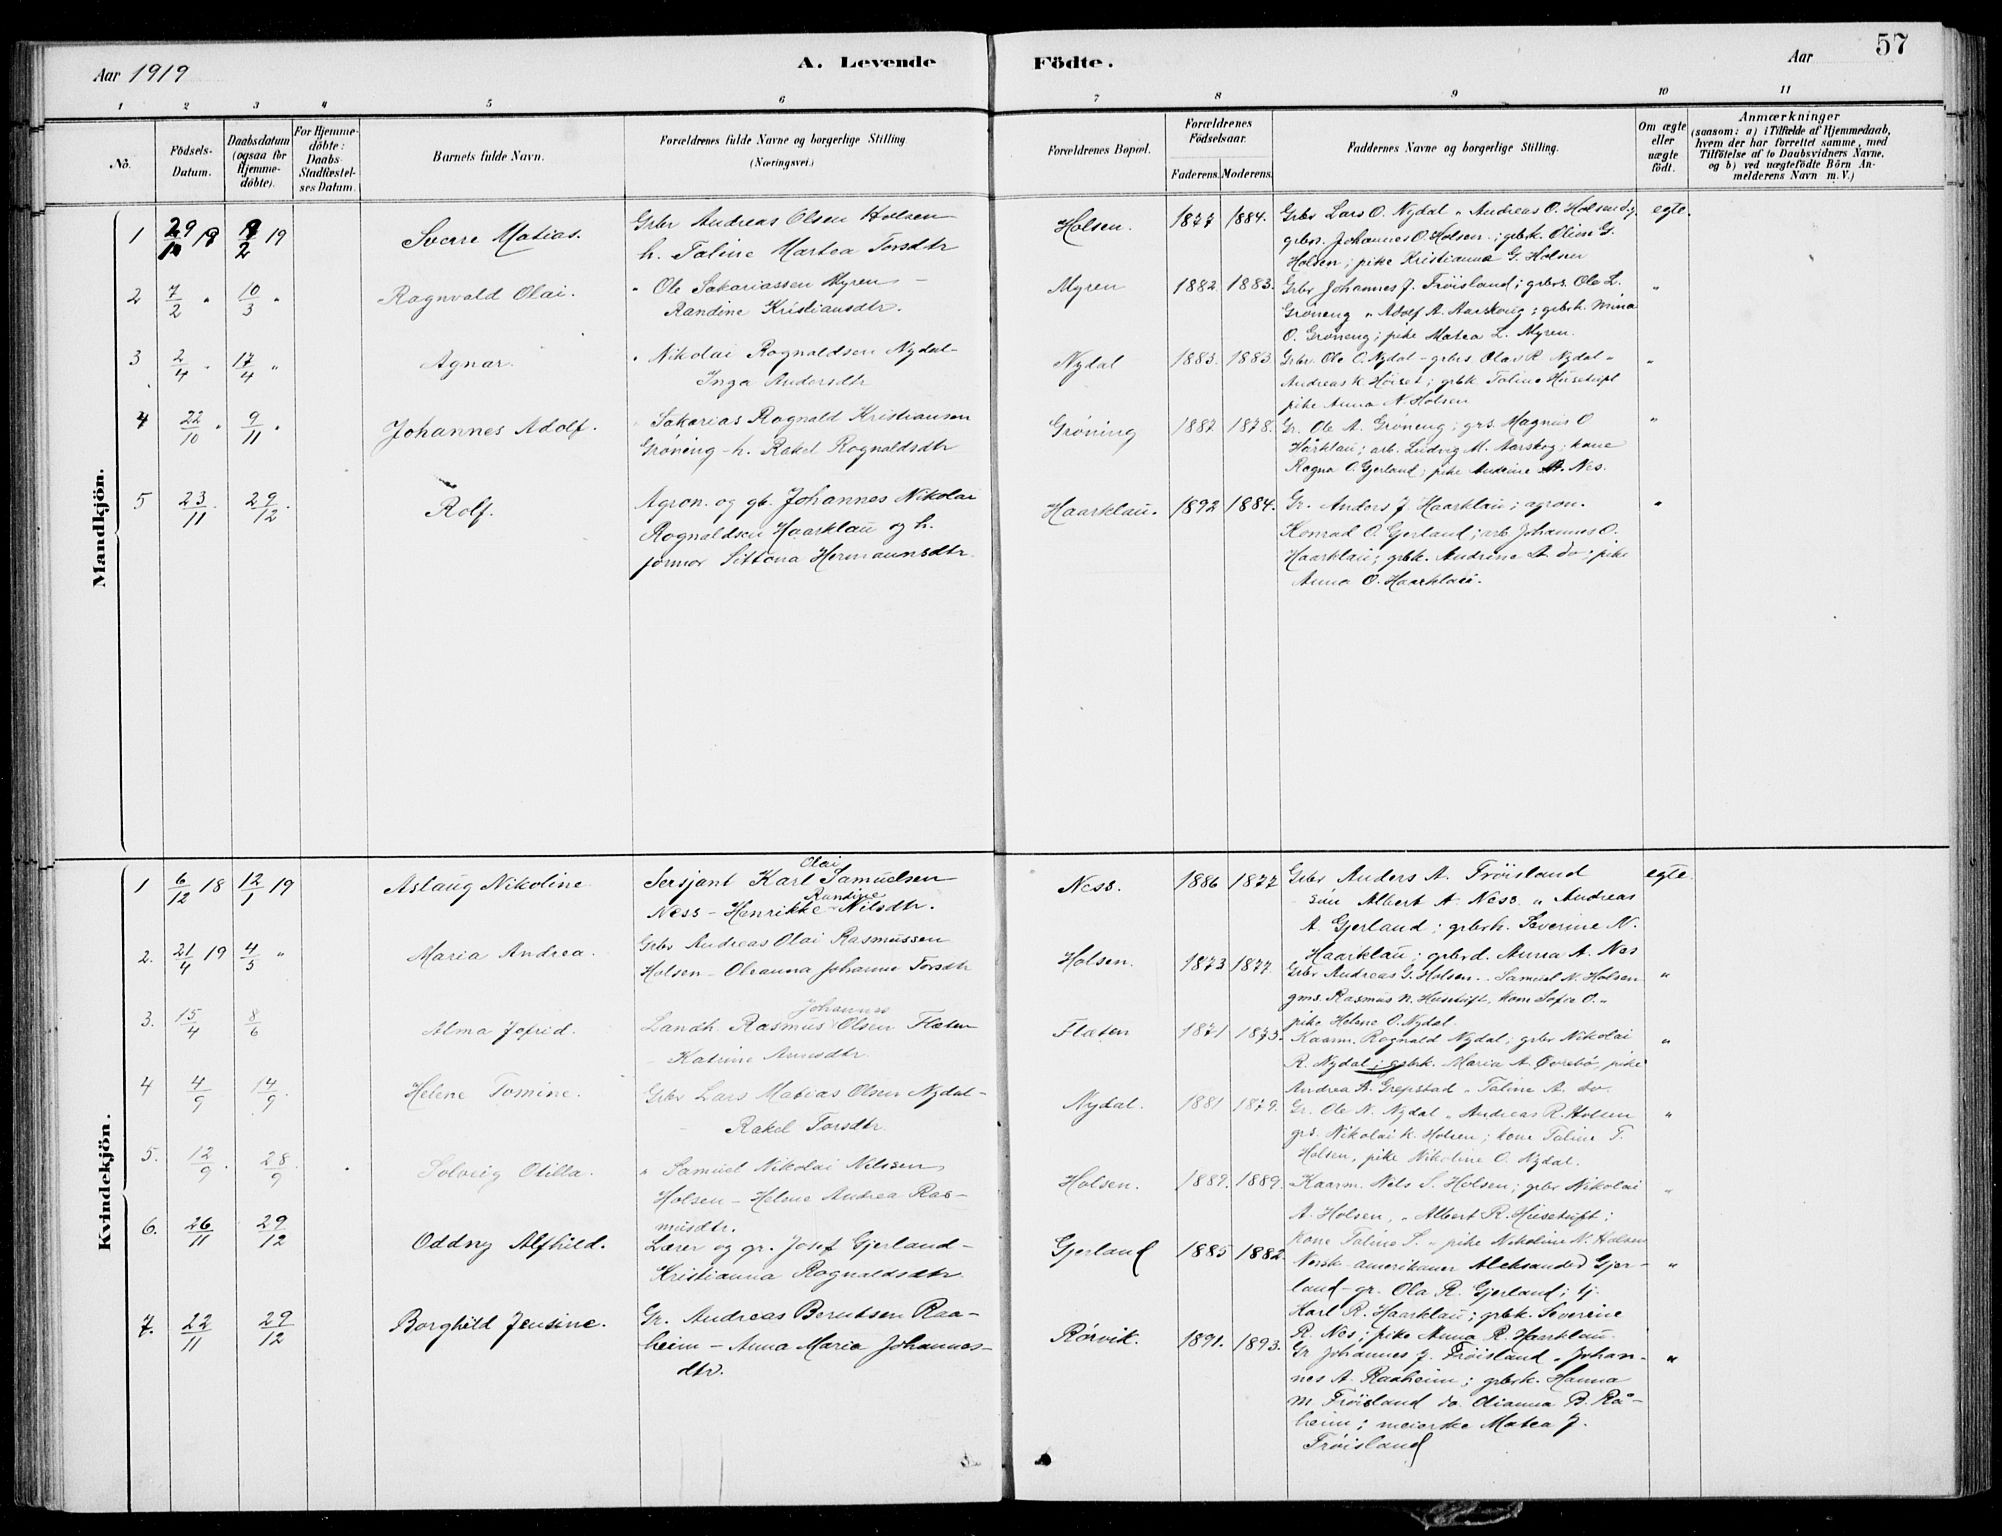 57
Aar 1919
A. Levende
Födte.
Aar
1 2 3 4 5 6 7 8 9 10 11
No.
Födsels-Datum.
Daabsdatum (ogsaa for Hjemmedöbte).
For Hjemmedöbte: Daabs Stadfæstelses Datum.
Barnets fulde Navn.
Forældrenes fulde Navne og borgerlige Stilling (Næringsvei.)
Forældrenes Bopæl.
Forældrenes Födselsaar.
Faderens. Moderens.
Faddernes Navne og borgerlige Stilling.
Om ægte eller uægte födt.
Anmærkninger
(saasom: a) i Tilfælde af Hjemmedaab,
hvem der har forrettet samme, med
Tilföielse af to Daabsvidners Navne,
og b) ved uægtefödte Börn An-
melderens Navn m. V.)
Mandkjön.
1 29/10 18 19
Sverre Matias.
Grbr Andreas Olsen Holsen
h. Taline Martea Torsdtr
Holsen. 1877 1884.
Grbr Lars O. Nydal „ Andreas O. Holsen
grbrs. Johannes O. Holsen; grbk. Olien G.
Holsen; pike Kristianna G. Holsen
egte.
2 7/2 „ 10/3 „
Ragnvald Olai.
„ Ole Sakariassen Myren –
Randine Kristiansdtr.
Myren 1882 1883.
Grbr Johannes J. Tröisland; grbrs. Ole L.
Gröneng „ Adolf A. Aarskoug; grbrk. Mina
O. Gröneng; pike Matea L. Myren.
„
3 2/4 „ 17/4 „
Agnar.
„ Nikolai Rognaldsen Nydal–
Inga Andersdtr
Nydal 1883. 1883
Grbr. Ole O. Nydal – grbrs. Olav R. Nydal „
Andreas K. Höiset; grbk. Taline Husetuft
pike Anna N. Holsen
„
4 22/10 „ 9/11 „
Johannes Adolf.
„ Sakarias Rognald Kristiansen
Gröneng – h. Rakel Rognaldsdtr
Gröning 1882 1878.
Gr. Ole A. Gröneng; grs. Magnus O
Hårklau; arb. Ludvig M. Aarskog; kone
Ragna O. Gjerland; pike Andrine A. Nes.
„
5 23/11 29/12
Rolf.
Agron. og gb. Johannes Nikolai
Rognaldsen Haarklau og h.
jormor Sittona Hermannsdtr.
Haarklau. 1892 1884.
Gr. Anders J Haarklau; agron.
Konrad O. Gjerland; arb Johannes O.
Haarklau; grbk. Andrine A. do; pike
Anna O. Haarklau.
„
Kvindekjön.
1 6/12 18 12/1 19
Aslaug Nikoline
Olai
Sersjant Karl Samuelsen
Randine
Ness – Henrikke Nilsdtr.
Ness. 1886 1877
Grbr Anders A. Tröisland
sön Albert A. Ness. „ Andreas
A. Gjerland; grbrk. Severine N.
Haarklau; grbrd. Anna A. Nes
egte.
2. 21/4 19 4/5 „
Maria Andrea.
Grbr Andreas Olai Rasmussen
Holsen – Oleanna Johanne Torsdtr
Holsen. 1873 1877.
Grbr Andreas G. Holsen. Samuel N. Holsen
gms. Rasmus N. Husetuft, kone Sofie O. „
pike Helene O. Nydal.
„
3. 15/4 8/6
Alma Jofrid.
Johannes
Landh. Rasmus Olsen Flaten
– Katrine Annsdtr.
Flaten 1871 1873.
Kaarm. Rognald Nydal; grbr Nikolai
R. Nydal; grbrk. Maria A. Övrebö, pike
Andrea A. Grepstad „ Taline A. do.
„
4 4/9 14/9
Helene Tomine.
Grbr Lars Matias Olsen Nydal–
– Rakel Torsdtr.
Nydal. 1881 1879.
Gr. Ole N. Nydal „ Andreas R. Holsen
grs. Nikolai K. Holsen; kone Taline T.
Holsen, pike Nikoline O. Nydal.
„
5. 12/9 28/9
Solveig Otilla.
„ Samuel Nikolai Nilssen
Holsen – Helene Andrea Ras–
musdtr.
Holsen. 1889. 1889.
Kaarm. Nils S. Holsen; grbr Nikolai
A. Holsen, „ Albert R. Husetuft;
kone Taline S. „ pike Nikoline N. Holsen
„
6. 26/11 29/12
Oddny Alfhild.
Lærer og gr. Josef Gjerland–
Kristianna Rognaldsdtr
Gjerland 1885 1882.
Norsk-amerikaner Aleksander Gjer–
land – gr. Ola R. Gjerland; G.
Karl R. Haarklau; grbk. Severine
R. Nes; pike Anna R. Haarklau.
„
7. 22/11 29/12
Borghild Jensine.
Gr. Andreas Berntsen Raa–
heim – Anna Maria Johannes–
dtr.
Rörvik. 1891. 1893.
Gr Johannes J. Tröisland „ Johan–
nes A. Raaheim; grbrk. Hanna
M. Tröisland do Olianna B. Rå–
heim; meierske Matea J.
Tröisland
„